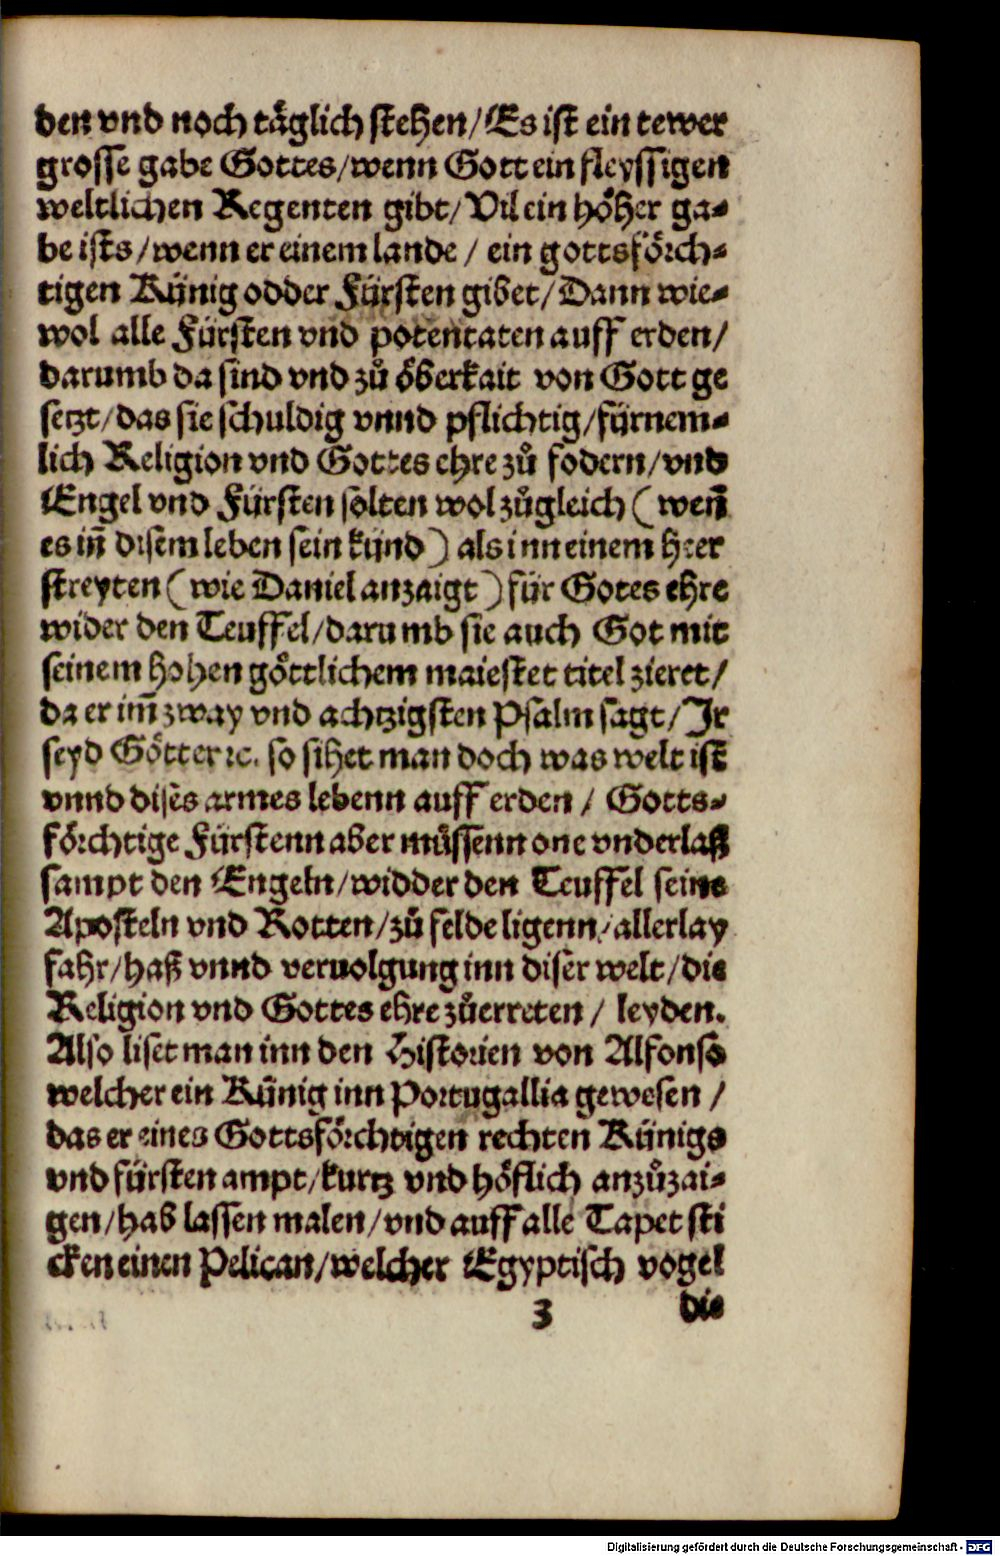 den vnd noch tåglich stehen/Es ist ein tewer
grosse gabe Gottes/wenn Gott ein fleyssigen
weltlichen Regenten gibt/Vil ein hôher ga⸗
be ists/wenn er einem lande / ein gottsfôrch⸗
tigen Kůnig odder Fürsten gibet/Dann wie⸗
wol alle Fürsten vnd potentaten auff erden/
darumb da sind vnd zů ôberkait von Gott ge
setzt/das sie schuldig vnnd pflichtig/fürnem⸗
lich Religion vnd Gottes ehre zů fodern/vnd
Engel vnd Fürsten solten wol zůgleich (weñ
es iñ disem leben sein künd) als inn einem heer
streyten (wie Daniel anzaigt) für Gotes ehre
wider den Teuffel/darumb sie auch Got mit
seinem hohen gôttlichem maiestet titel zieret/
da er im̄ zway vnd achtzigsten Psalm sagt/Jr
seyd Gôtter ꝛc. so sihet man doch was welt ist
vnnd dises armes lebenn auff erden / Gotts⸗
fôrchtige Fürstenn aber mûssenn one vnderlaß
sampt den Engeln/widder den Teuffel seine
Aposteln vnd Rotten/zů felde ligenn/allerlay
fahr/haß vnnd veruolgung inn diser welt/die
Religion vnd Gottes ehre zůerreten / leyden.
Also liset man inn den Historien von Alfonso
welcher ein Kůnig inn Portugallia gewesen /
das er eines Gottsfôrchtigen rechten Künigs
vnd fürsten ampt/kurtz vnd hôflich anzůzai⸗
gen/hab lassen malen/vnd auff alle Tapet sti
cken einen Pelican/welcher Egyptisch vogel
3 die
Digitalisierung gefördert durch die Deutsche Forschungsgemeinschaft - DFG